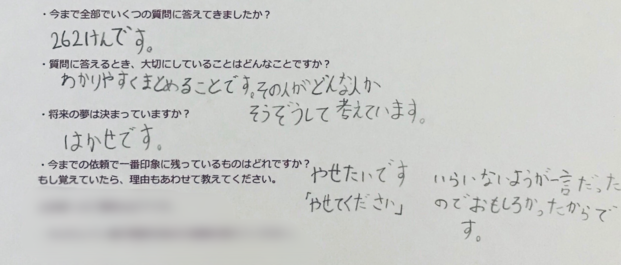 ・今まで全部でいくつの質問に答えてきましたか?
262けんです。
・質問に答えるとき、大切にしていることはどんなことですか?
わかりやすくまとめることです。その人がどんな人か
そうぞうして考えています。
・将来の夢は決まっていますか?
はかせです。
・今までの依頼で一番印象に残っているものはどれですか?
もし覚えていたら、理由もあわせて教えてください。
やせたいです
「やせてください」
いらいないようが一言だった
のでおもしろかったからで
す。